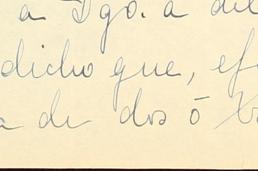 a Dgo. a di
dicho que, ef
a de dos ó